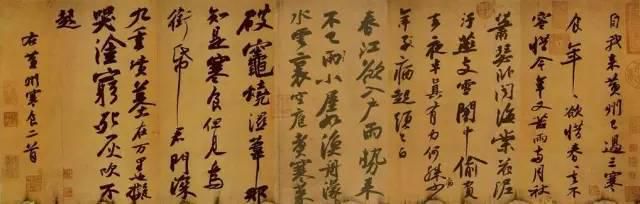 自我來黃州已過三寒
食年々欲惜春々去不
容惜今年又苦雨兩月秋
蕭瑟卧聞海棠花泥
汙燕支雪闇中偷負
去夜半真有力何殊病少
年子病起頭已白
春江欲入戶雨勢來
不已雨小屋如漁舟濛々
水雲裏空庖煮寒菜
破竈燒濕葦那
知是寒食但見烏
銜帋君門深
九重墳墓在万里也擬
哭塗窮死灰吹不
起
右黃州寒食二首